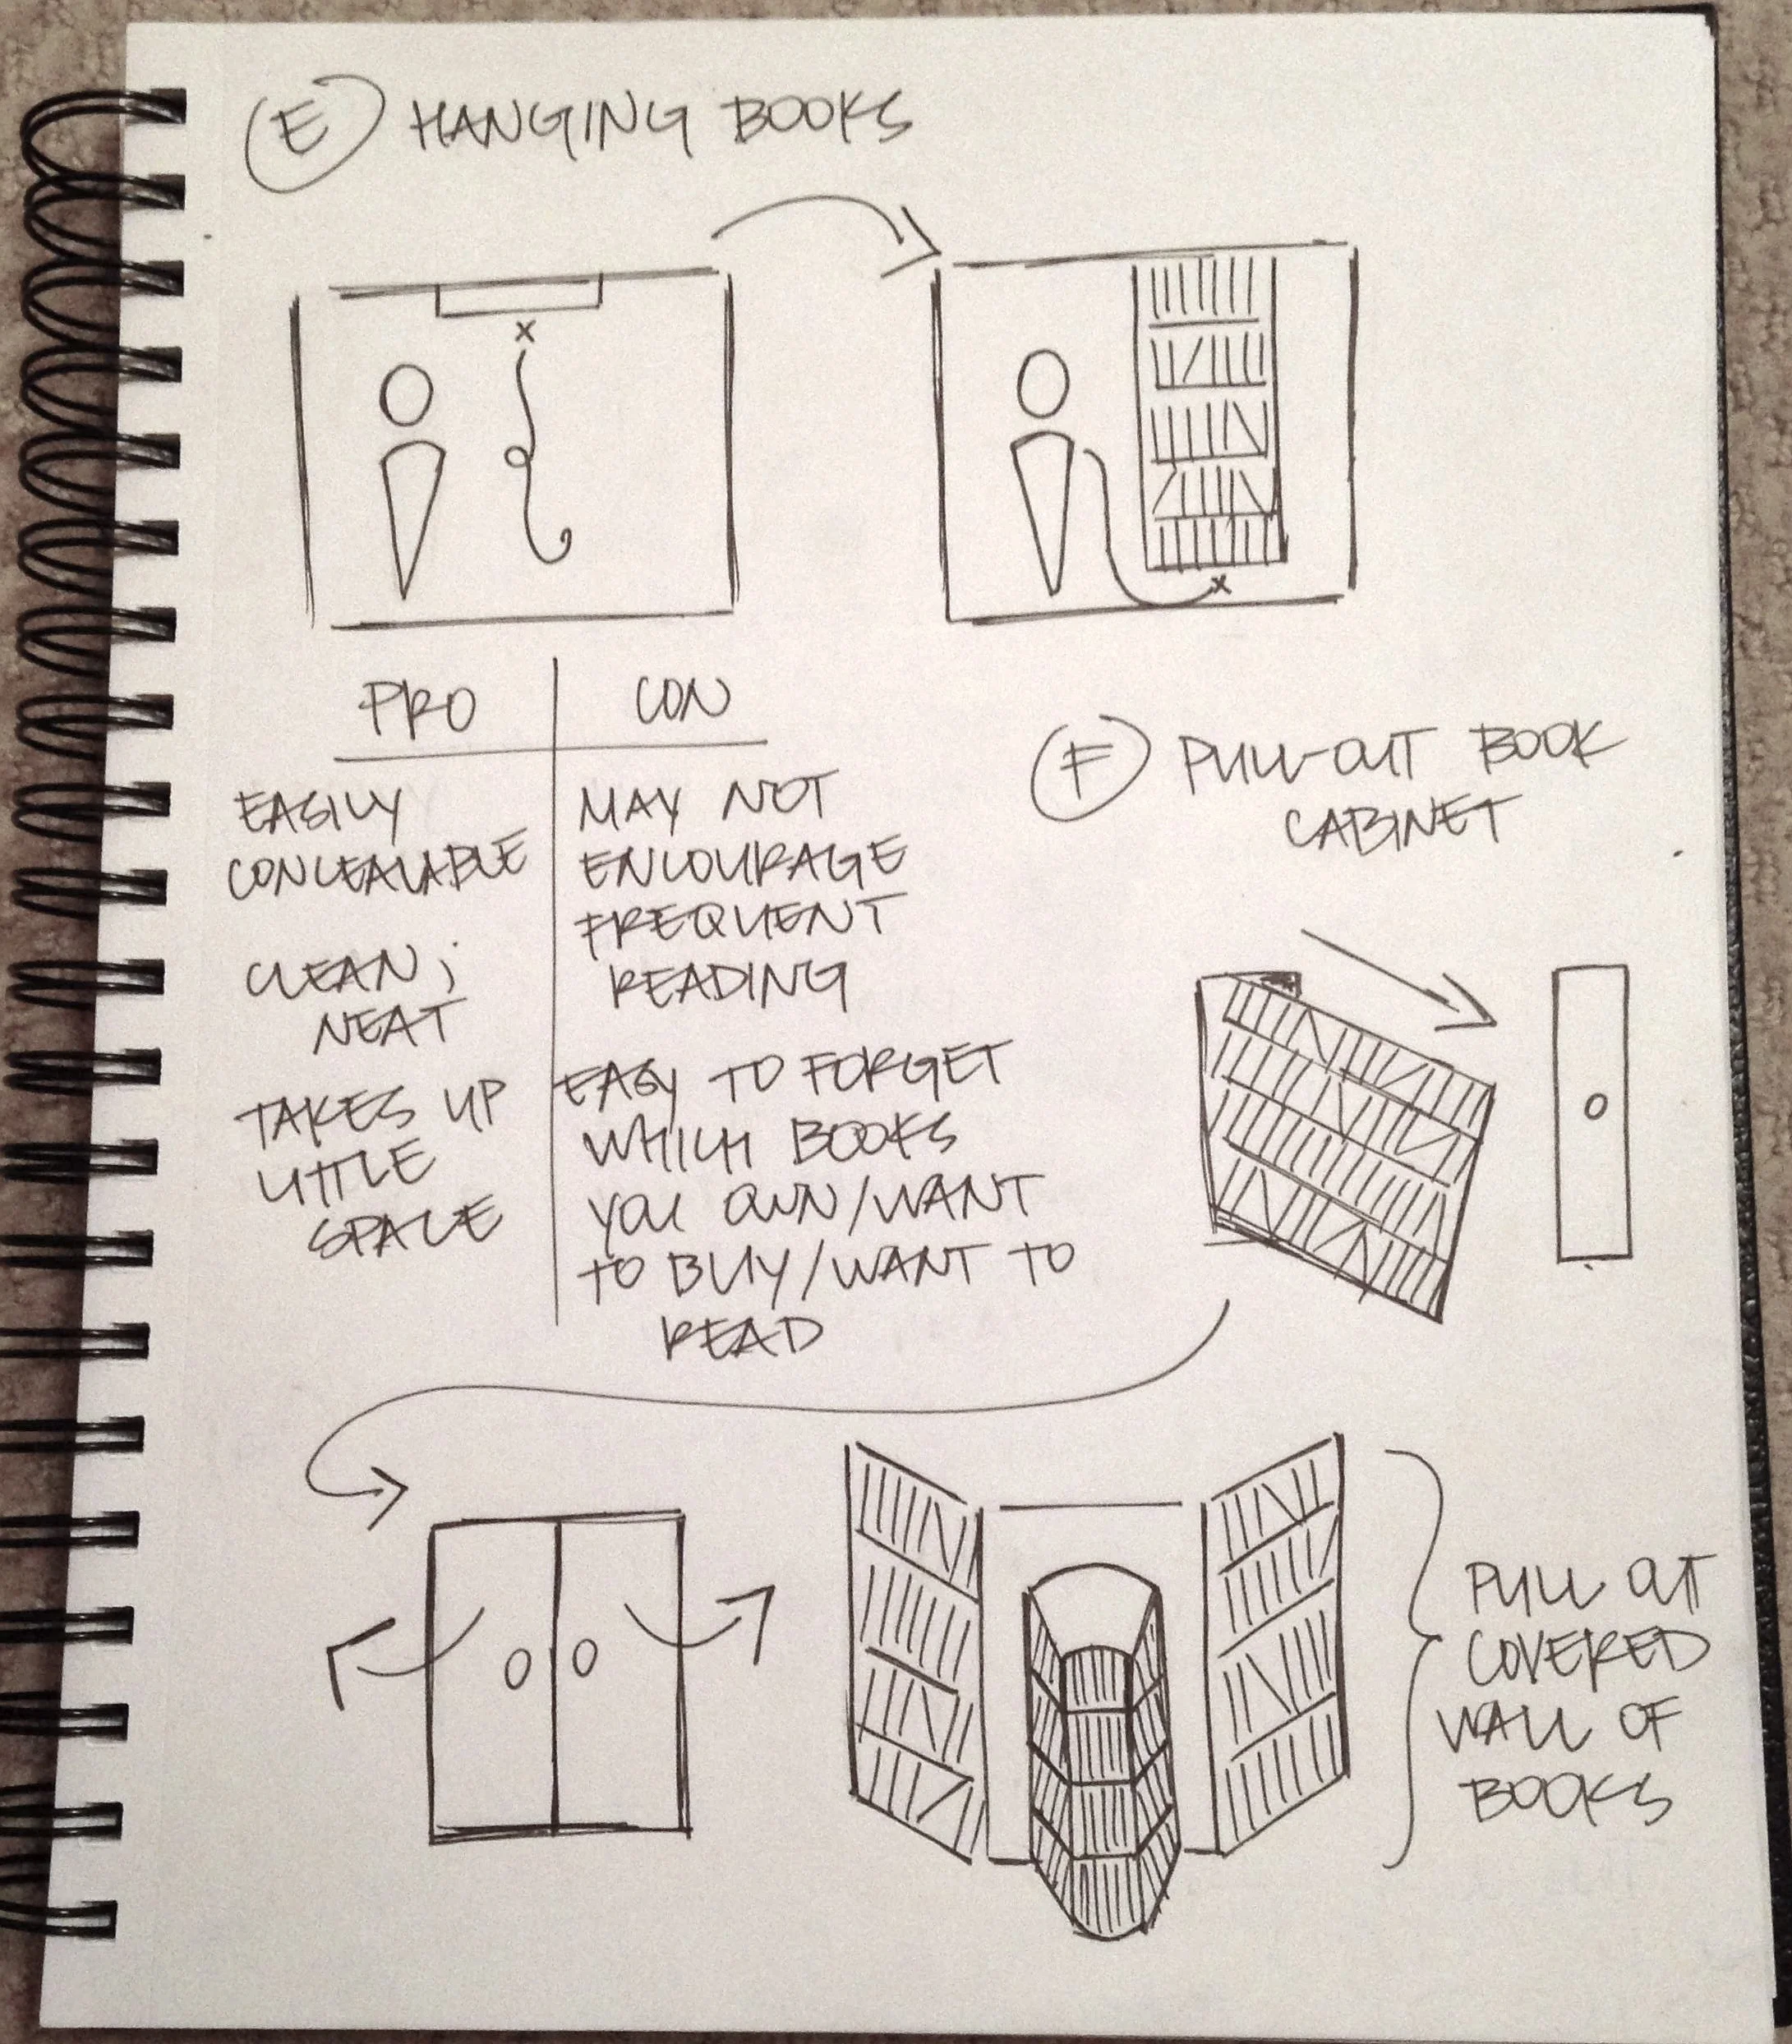 E HANGING BOOKS
x
x
PRO
EASILY
CONCEALABLE
CLEAN;
NEAT
TAKES UP
LITTLE
SPACE
CON
MAY NOT
ENCOURAGE
FREQUENT
READING
EASY TO FORGET
WHICH BOOKS
YOU OWN/WANT
TO BUY/WANT TO
READ
F PULL-OUT BOOK
CABINET
PULL OUT
COVERED
WALL OF
BOOKS